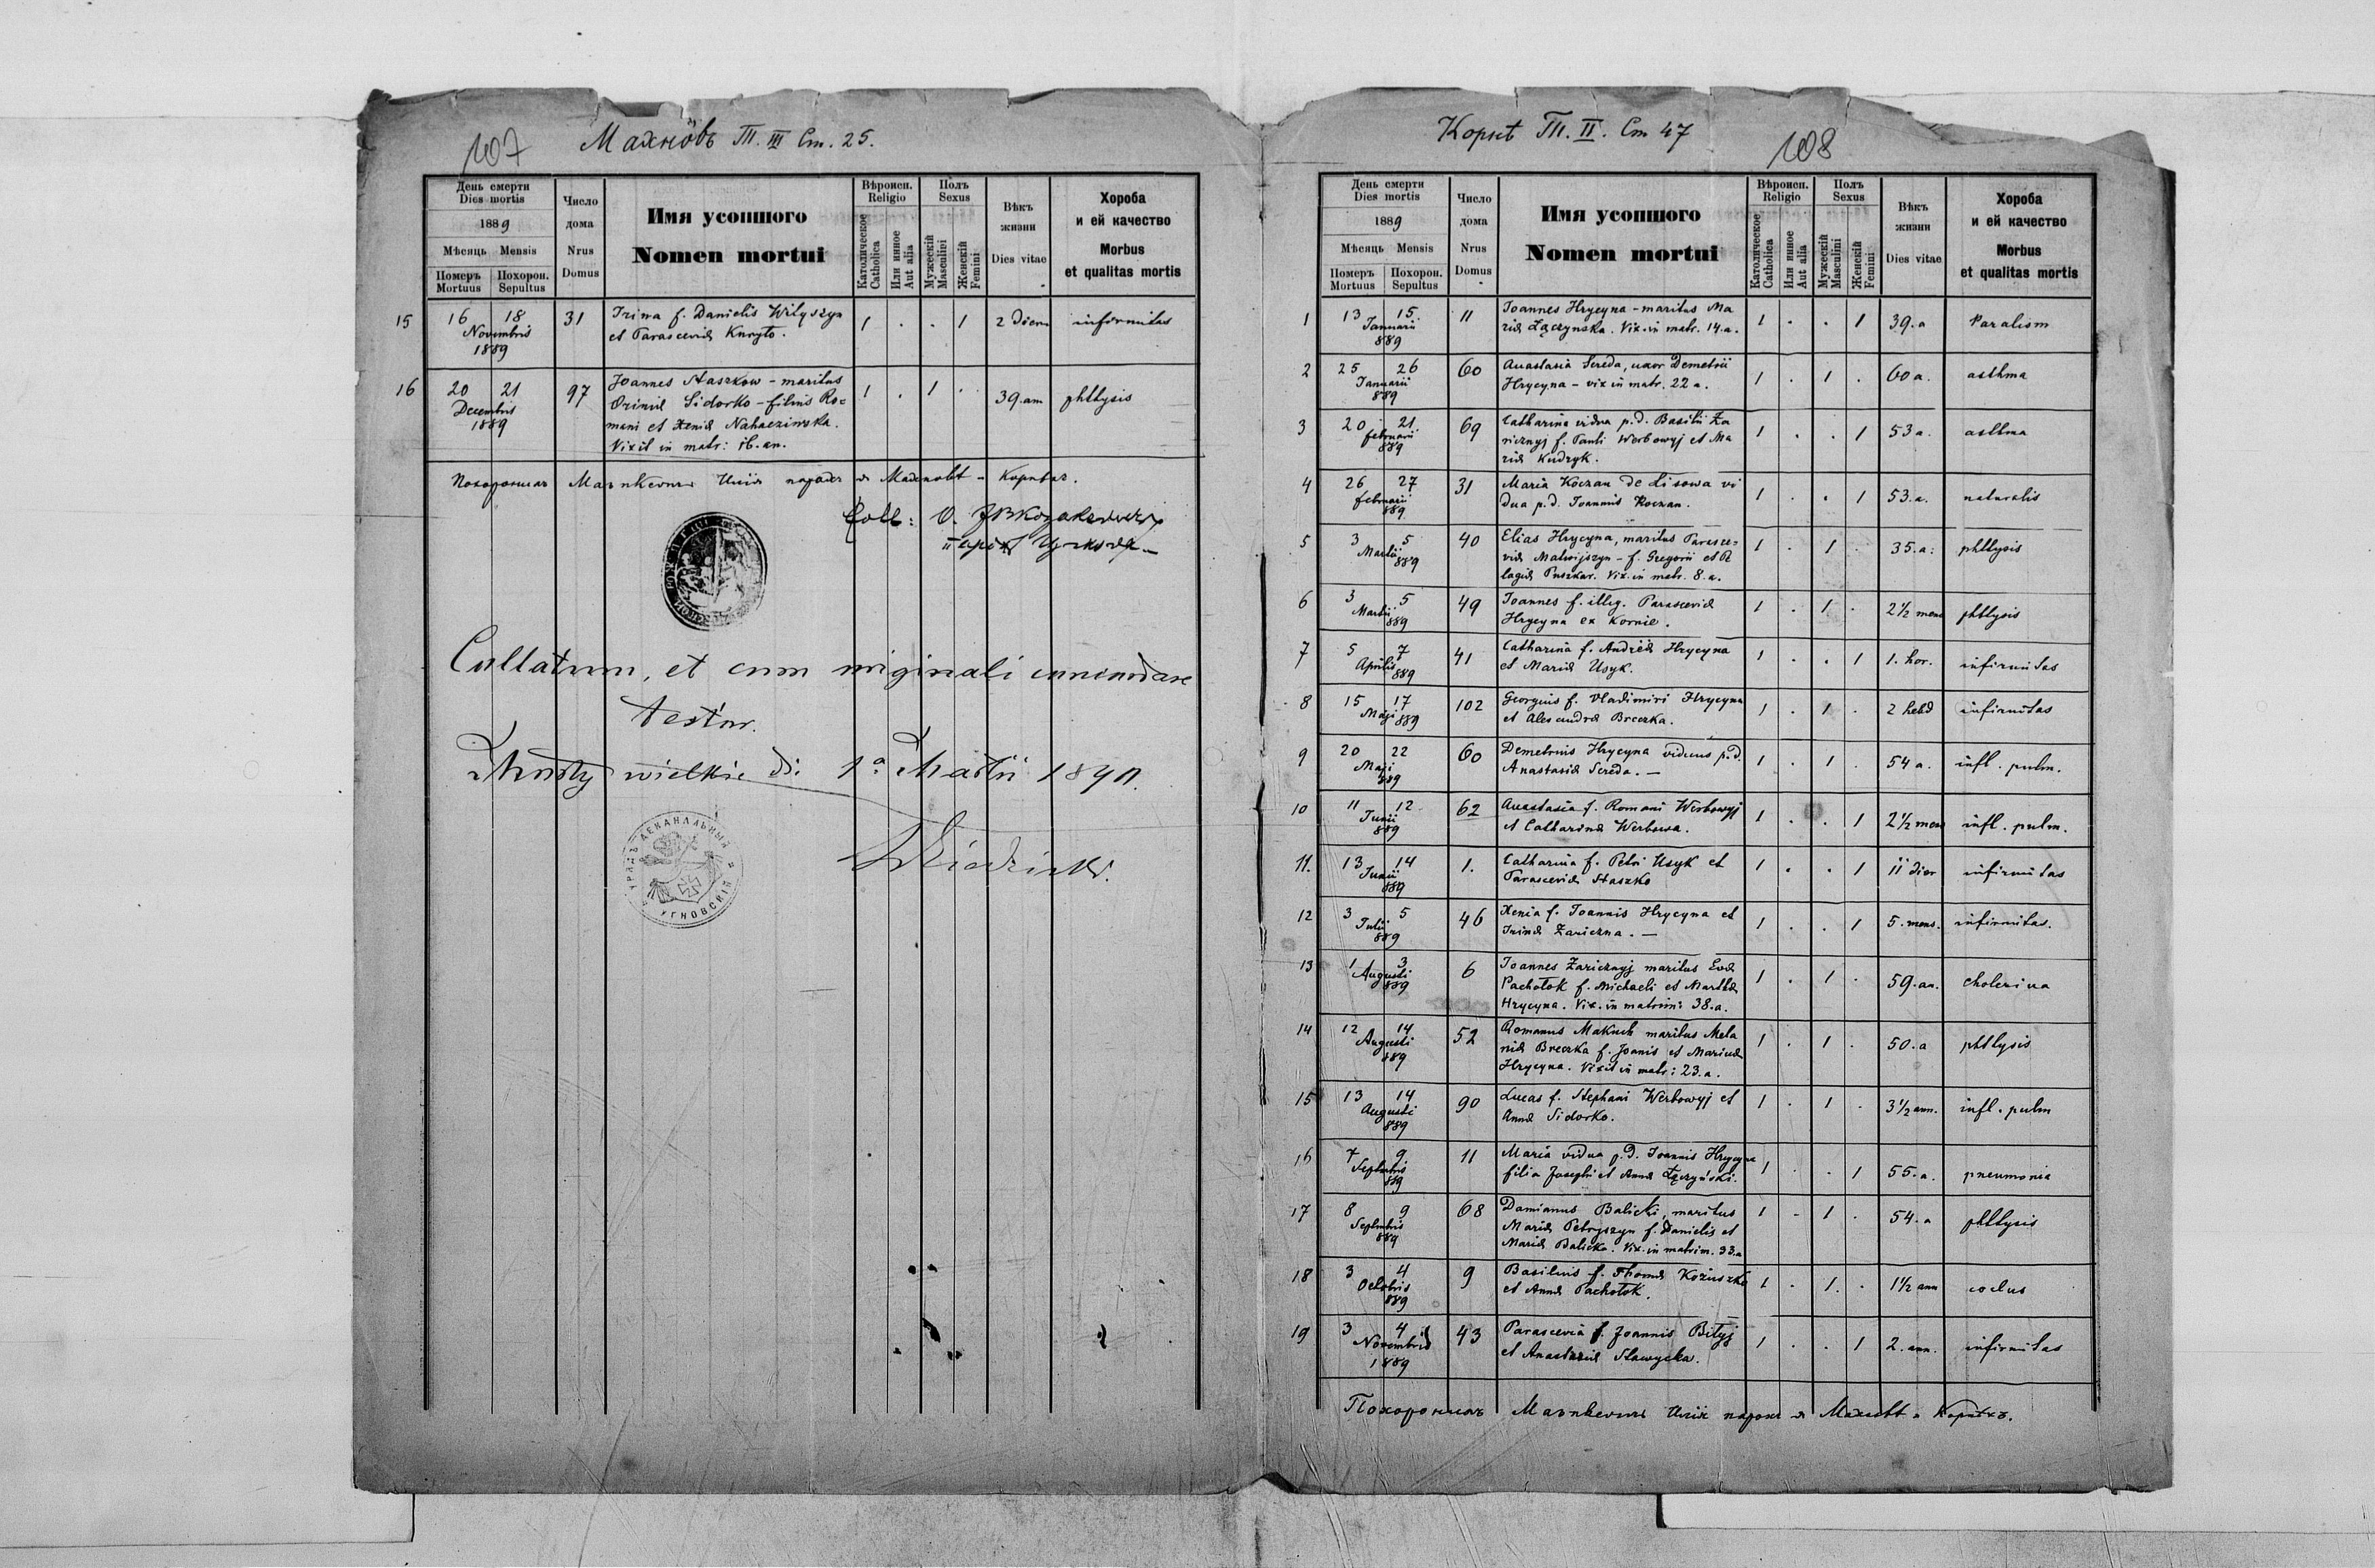 107 Махнôвъ Т. III Ст. 25.
День смерти
Dies mortis
1889
Мѣсяць Mensis
Померъ Похорон.
Mortuus Sepultus
Число
дома
Nrus
Domus
Имя усопшого
Nomen mortui
Вѣроисп.
Religio
Католическое
Catholica
Или инное
Aut alia
Полъ
Sexus
Мужескій
Masculini
Женскій
Femini
Вѣкъ
жизни
Dies vitae
Хороба
и ей качество
Morbus
et qualitas mortis
15 16 18 31 Irina f. Danielis Wityszyn 1 . . 1 2 dier. infirmitas
Novembris et Parasceviæ Knryto.
1889
16 20 21 97 Joannes Staszkow - maritus 1 . 1 . 39. an phthysis
Decembris Oriniæ Sidorko - filius Ro=
1889 mani et Xeniæ Nahaczinska.
Vixit in matr: 16. an.
Похоронилъ Илія парохъ
Collatum, et cum originali concordare
testor.
Mosty wielkie di 1a Martii 1890.
ДЕКАНАЛЬНЫЙ
УГНОВСКІЙ
Корнѣ Т. II. Ст 47 108
День смерти
Dies mortis
1889
Мѣсяць Mensis
Померъ Похорон.
Mortuus Sepultus
Число
дома
Nrus
Domus
Имя усопшого
Nomen mortui
Вѣроисп.
Religio
Католическое
Catholica
Или инное
Aut alia
Полъ
Sexus
Мужескій
Masculini
Женскій
Femini
Вѣкъ
жизни
Dies vitae
Хороба
и ей качество
Morbus
et qualitas mortis
1 13 15. 11 Joannes Hrycyna - maritus Ma 1 . . 1 39. a Paralism
Januarii riæ Łączynska. Vix. in matr. 14. a.
889
2 25 26 60 Anastasia Sereda, uxor Demetrii 1 . 1 . 60 a. asthma
Januarii Hrycyna - vix in matr. 22 a.
889
3 20 21 69 Catharina vidua p. d. Basilii Za 1 . . 1 53 a. asthma
februarii ricznyj f. Pauli Werbowyj et Ma
889 riæ Kudryk.
4 26 27 31 Maria Koczan de Lisowa vi 1 . . 1 53. a. naturalis
februarii dua p. d. Joannis Koczan.
889
5 3 5 40 Elias Hrycyna, maritus Parasce= 1 . 1 . 35. a: phthysis
Martii viæ Matwijszyn - f. Gregorii et Pe
889 lagiæ Puszkar. Vix. in matr. 8. a.
6 3 5 49 Joannes f. illeg. Parasceviæ 1 . 1 . 2 1/2 mens phthysis
Martii Hrycyna ex Kornie.
889
7 5 7 41 Catharina f. Andreæ Hrycyna 1 . . 1 1. hor. infirmitas
Aprilis et Mariæ Usyk.
889
8 15 17 102 Georgius f. Vladimiri Hrycyna 1 . 1 . 2 hebd infirmitas
Maji et Alexandræ Breczka.
889
9 20 22 60 Demetrius Hrycyna viduus p. d. 1 . 1 . 54 a. infl. pulm.
Maji Anastasiæ Sereda. -
889
10 11 12. 62 Anastasia f. Romani Werbowyj 1 . . 1 2 1/2 mens infl. pulm.
Junii et Catharinæ Werbowa.
889
11. 13 14 1. Catharina f. Petri Usyk et 1 . . 1 11 dier infirmitas
Junii Parasceviæ Staszko
889
12 3 5 46 Xenia f. Joannis Hrycyna et 1 . . 1 5. mens. infirmitas.
Julii Irinæ Zariczna. -
889
13 1 3 6 Joannes Zaricznyj maritus Evæ 1 . 1 . 59. an. cholerina
Augusti Pachołok f. Michaeli et Marthæ
889 Hrycyna. Vix. in matrim: 38. a.
14 12 14 52 Romanus Makuch maritus Mela 1 . 1 . 50. a phthysis
Augusti niæ Breczka f. Joanis et Mariæ
889 Hrycyna. Vixit in matr: 23. a.
15 13 14 90 Lucas f. Stephani Werbowyj et 1 . 1 . 3 1/2 ann. infl. pulm
Augusti Annæ Sidorko.
889
16 7 9 11 Maria vidua p. d. Joannis Hrycyna 1 . . 1 55. a. pneumonia
Septmbris filia Josephi et Annæ Łączyński.
889
17 8 9 68 Damianus Balicki, maritus 1 . 1 . 54. a phthysis
Septmbris Mariæ Petryszyn f. Danielis et
889 Mariæ Balicka. Vix. in matrim. 33. a
18 3 4 9 Basilius f. Thomæ Kożuszko 1 . 1. . 1 1/2 ann
Octobris et Annæ Pachołok.
889
19 3 4 43 Parascevia f. Joannis Biłyj 1 . . 1 2. ann. infirmitas
Novembris et Anastasiæ Sławycka.
1889
Похоронилъ Илія парохъ